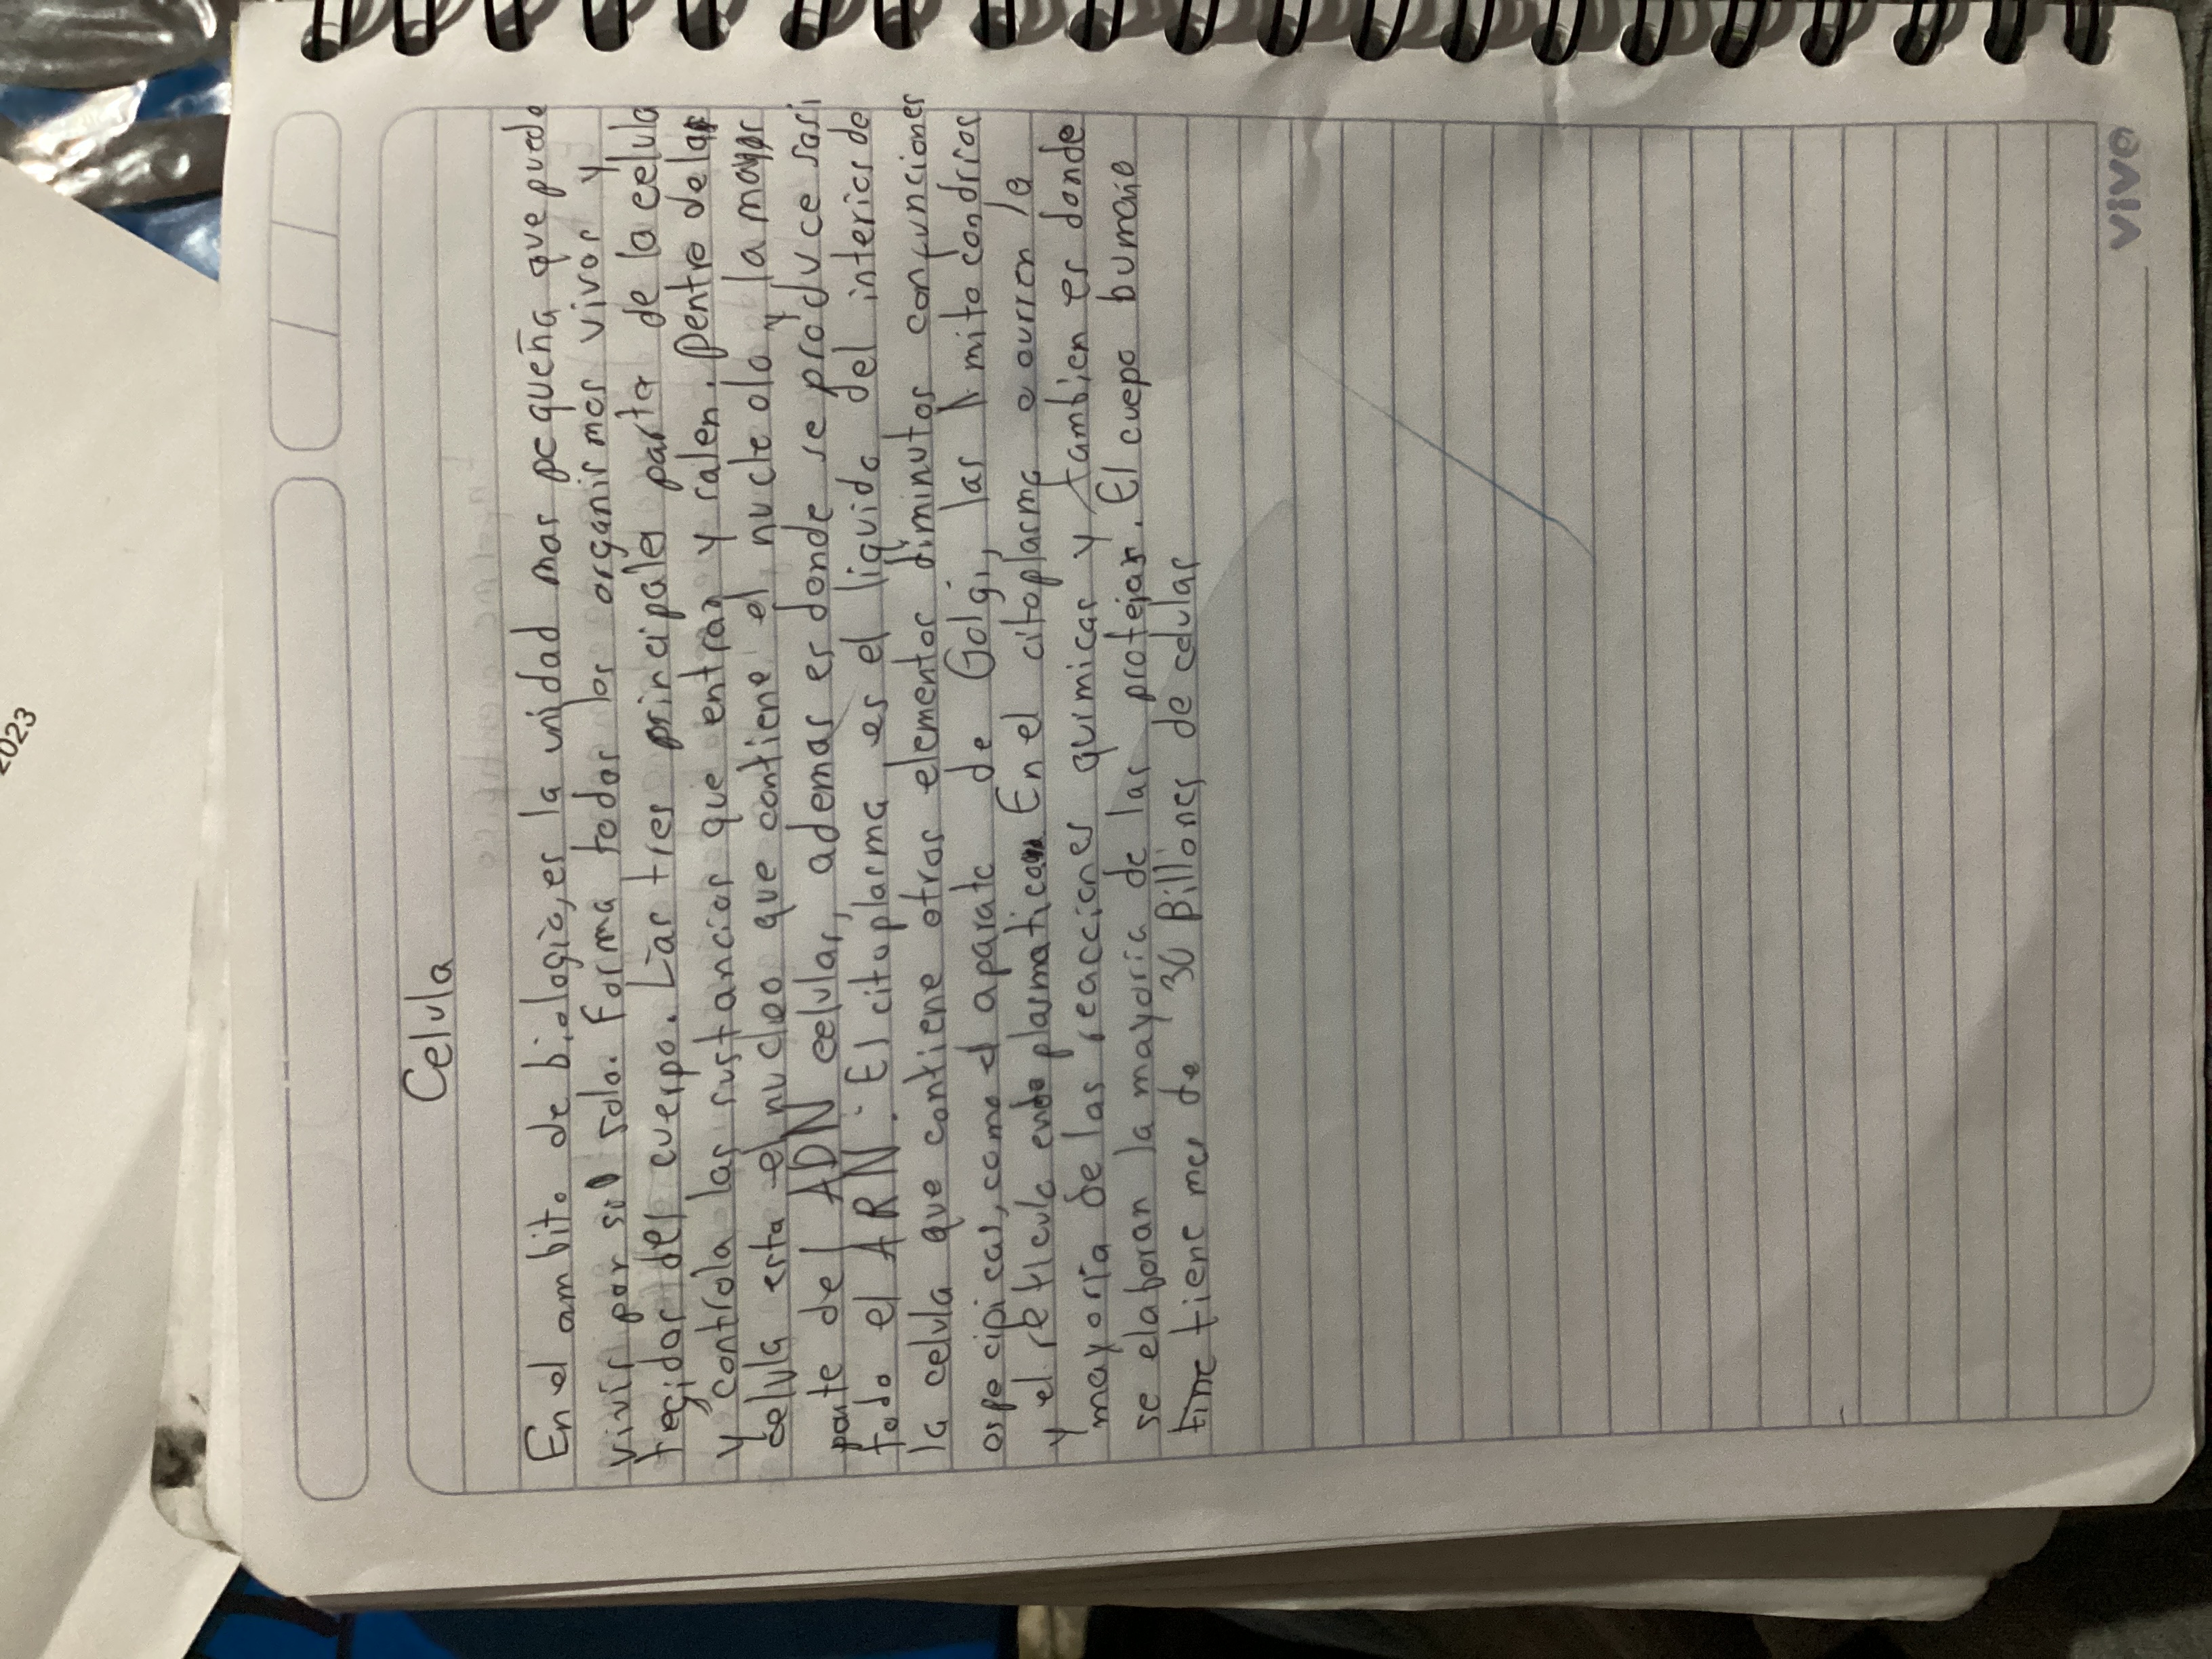 2023
Celula
En el ambito de biologia, es la unidad mas pequeña que puede
vivir por si sola. Forma todos los organismos vivos y
tegidos del cuerpo. Las tres principales partes de la celula
y controla las sustancias que entran y salen. Dentro de la
celula esta el nucleo que contiene el nucleolo y la mayor
parte del ADN celular, ademas es donde se produce casi
todo el ARN. El citoplasma es el liquido del interior de
la celula que contiene otros elementos diminutos con funciones
especificas, como el aparato de Golgi, las mitocondrias
y el reticulo endoplasmatico En el citoplasma ocurren la
mayoria de las reacciones quimicas y tambien es donde
se elaboran la mayoria de las protejas. El cuepo bumano
tiene mas de 30 Billones de celulas
vivo